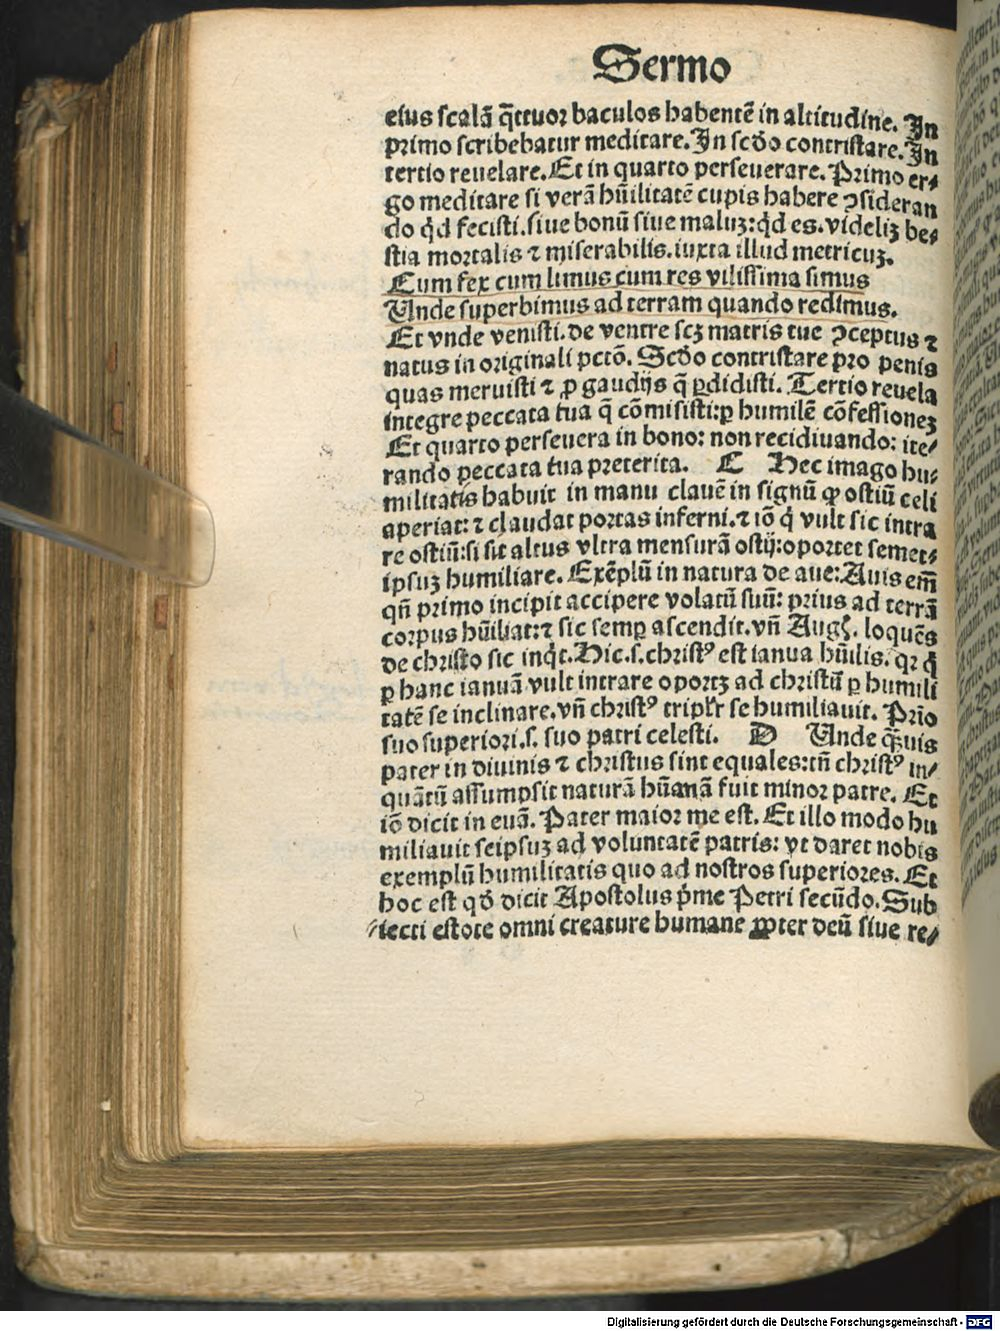 Sermo
eius scalā q̄ttuor baculos habentē in altitudine. In
primo scribebatur meditare. In scđo contristare. In
tertio reuelare. Et in quarto perseuerare. Primo er⸗
go meditare si verā hūilitatē cupis habere ꝯsideran
do qd̓ fecisti. siue bonū siue maluꝫ: qd̓ es. videliꝫ be⸗
stia mortalis ⁊ miserabilis. iuxta illud metricuꝫ.
Cum fex cum limus cum res vilissima simus
Unde superbimus ad terram quando redimus.
Et vnde venisti. de ventre scꝫ matris tue ꝯceptus ⁊
natus in originali pctō. Scđo contristare pro penis
quas meruisti ⁊ ꝓ gaudijs q̄ ꝑdidisti. Tertio reuela
integre peccata tua q̄ cōmisisti: ꝑ humilē cōfessioneꝫ
Et quarto perseuera in bono: non recidiuando: ite⸗
rando peccata tua preterita. C Hec imago hu⸗
militatis habuit in manu clauē in signū ꝙ ostiū celi
aperiat: ⁊ claudat portas inferni. ⁊ iō q̇ vult sic intra
re ostiū: si sit altus vltra mensurā ostij: oportet semet⸗
ipsuꝫ humiliare. Exēplū in natura de aue: Auis em̄
qn̄ primo incipit accipere volatū suū: prius ad terrā
corpus hūiliat: ⁊ sic semꝑ ascendit. vn̄ Augꝰ. loquēs
de christo sic inq̇t. Hic. s. christꝰ est ianua hūilis. qꝛ q̇
ꝑ hanc ianuā vult intrare oportꝫ ad christū ꝑ humili
tatē se inclinare. vn̄ christꝰ triplr̄ se humiliauit. Prīo
suo superiori. s. suo patri celesti. D Unde q̄ꝫuis
pater in diuinis ⁊ christus sint equales: tn̄ christꝰ in⸗
quātū assumpsit naturā hūanā fuit minor patre. Et
iō dicit in euā. Pater maior me est. Et illo modo hu
miliauit seipsuꝫ ad voluntatē patris: vt daret nobis
exemplū humilitatis quo ad nostros superiores. Et
hoc est qđ dicit Apostolus p̄me Petri secūdo. Sub
iecti estote omni creature humane ꝓpter deū siue re⸗
Digitalisierung gefördert durch die Deutsche Forschungsgemeinschaft - DFG